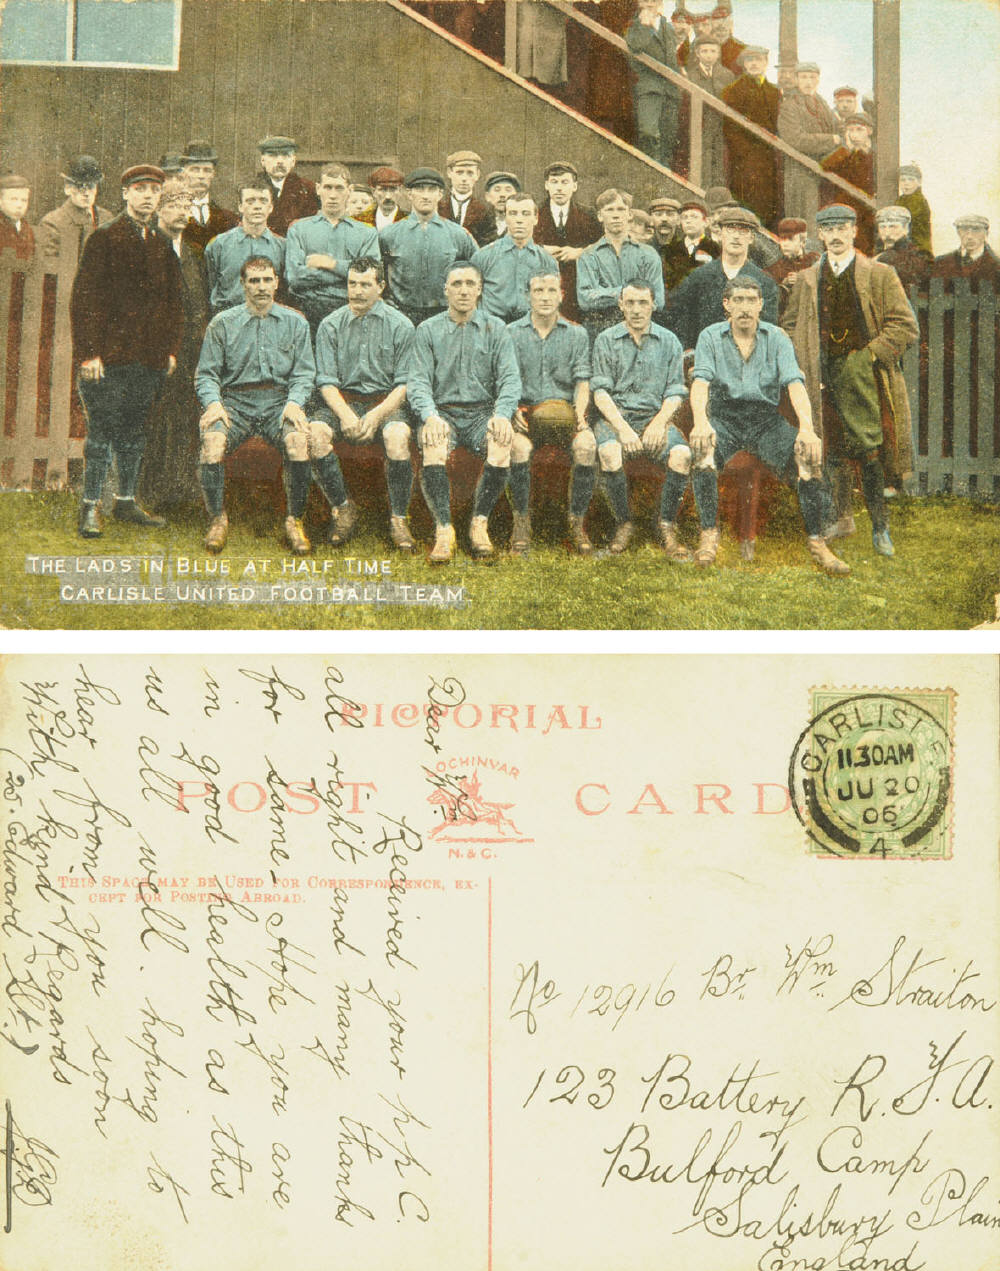 THE LADS IN BLUE AT HALF TIME
CARLISLE UNITED FOOTBALL TEAM.
PICTORIAL
POST CARD
LOCHINVAR
N. & C.
THIS SPACE MAY BE USED FOR CORRESPONDENCE, EX-
CEPT FOR POSTING ABROAD.
CARLISLE
11.30AM
JU 20
06
4
Dear Wm:
Received your p p C.
all right and many thanks
for same. Hope you are
in good health as this
us all well. hoping to
hear from you soon
With Kind Regards
25 Edward St.
No 12916 Br. Wm. Straiton
123 Battery R.F.A.
Bulford Camp
Salisbury Plain
England